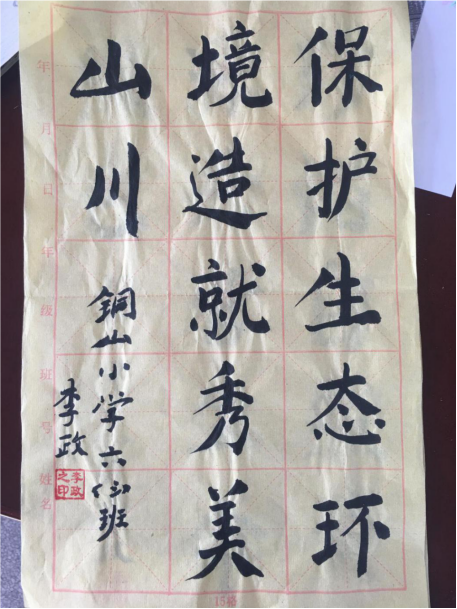 保护生态环
境造就秀美
山川
铜山小学六(5)班
李政
李政之印
年月日年级班号姓名
15格